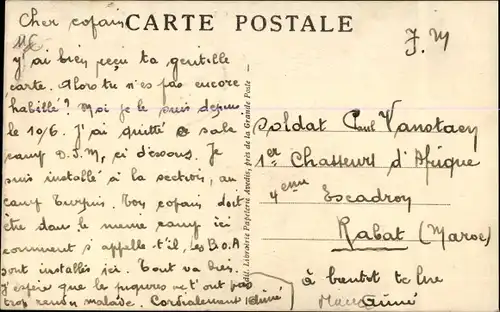 Cher cofain
CARTE POSTALE
F.M
J'ai bien reçu ta gentille
carte. Alors tu n'es pas encore
habillé? Moi je le suis depuis
le 10/6. J'ai quitté ce sale
camp D.I.M, ci dessous. Je
suis installé à la section, au
camp Turpin. Ton cofain doit
être dans le meme camp ici
comment s'appelle t'il, les B.O.A
sont installés ici. Tout va bien.
J'espère que les piqures ne t'ont pas
trop rendu malade. Cordialement Aimé
Edit. Librairie Papeterie Avedis, près de la Grande Poste
Soldat Paul Vanstaen
1er Chasseurs d'Afrique
4eme Escadron
Rabat (Maroc)
à bientot te lire
Aimé